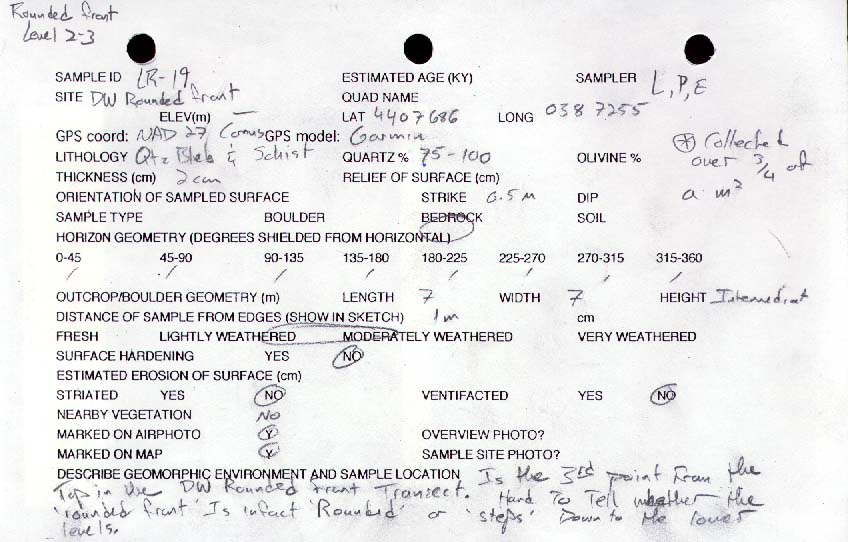 Rounded front
Level 2-3
SAMPLE ID LR-19 ESTIMATED AGE (KY) SAMPLER L, P, E
SITE DW Rounded front QUAD NAME
ELEV(m) — LAT 4407686 LONG 0387255
GPS coord: NAD 27 Conus GPS model: Garmin
LITHOLOGY Qtz Bleb & Schist QUARTZ % 75-100 OLIVINE % * Collected over 3/4 of a m²
THICKNESS (cm) 2cm RELIEF OF SURFACE (cm)
ORIENTATION OF SAMPLED SURFACE STRIKE 0.5 M DIP
SAMPLE TYPE BOULDER BEDROCK SOIL
HORIZON GEOMETRY (DEGREES SHIELDED FROM HORIZONTAL)
0-45 45-90 90-135 135-180 180-225 225-270 270-315 315-360
/ / / / / / / /
OUTCROP/BOULDER GEOMETRY (m) LENGTH 7 WIDTH 7 HEIGHT
DISTANCE OF SAMPLE FROM EDGES (SHOW IN SKETCH) 1m cm
FRESH LIGHTLY WEATHERED MODERATELY WEATHERED VERY WEATHERED
SURFACE HARDENING YES NO
ESTIMATED EROSION OF SURFACE (cm)
STRIATED YES NO VENTIFACTED YES NO
NEARBY VEGETATION NO
MARKED ON AIRPHOTO Y OVERVIEW PHOTO?
MARKED ON MAP Y SAMPLE SITE PHOTO?
DESCRIBE GEOMORPHIC ENVIRONMENT AND SAMPLE LOCATION Is the 3rd point From the
Top in the DW Rounded front Transect. Hard To Tell whether the
'rounded front' Is infact 'Rounded' or 'steps' Down to the lower
levels.